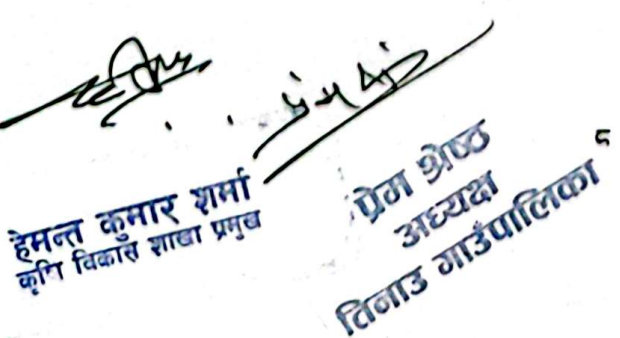 हेमन्त कुमार शर्मा
कृषि विकास शाखा प्रमुख
प्रेम श्रेष्ठ
अध्यक्ष
तिनाउ गाउँपालिका